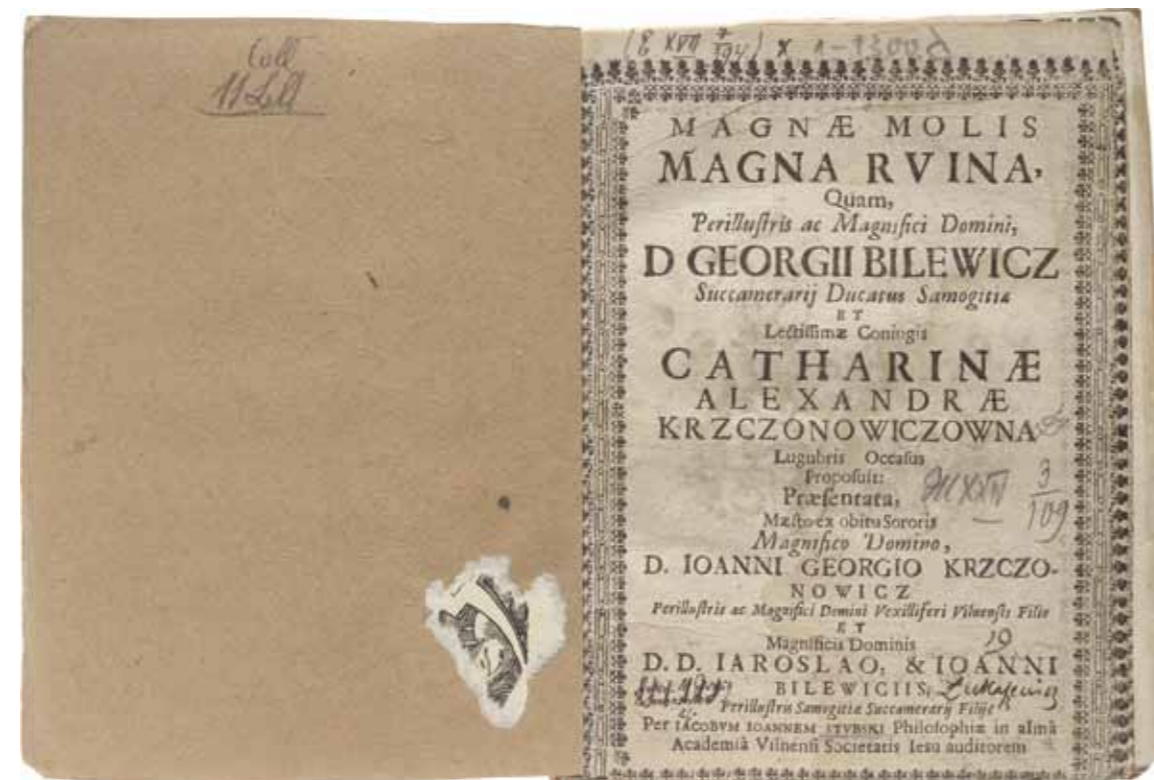 Coll
(E XVII 7/104) x
MAGNÆ MOLIS
MAGNA RVINA,
Quam,
Perilluſtris ac Magnifici Domini,
D GEORGII BILEWICZ
Succamerarij Ducatus Samogitiæ
ET
Lectiſſimæ Coniugis
CATHARINÆ
ALEXANDRÆ
KRZCZONOWICZOWNA
Lugubris Occaſus
Propoſuit:
Præſentata,
Mæſto ex obitu Sororis
Magnifico Domino,
3/109
D. IOANNI GEORGIO KRZCZO-
NOWICZ
Perilluſtris ac Magnifici Domini Vexilliferi Vilnenſis Filio
ET
Magnificis Dominis
19
D. D. IAROSLAO, & IOANNI
BILEWICIIS,
Perilluſtris Samogitiæ Succamerarij Filijs
Per IACOBVM IOANNEM STVBSKI Philoſophiæ in almâ
Academiâ Vilnenſi Societatis Ieſu auditorem